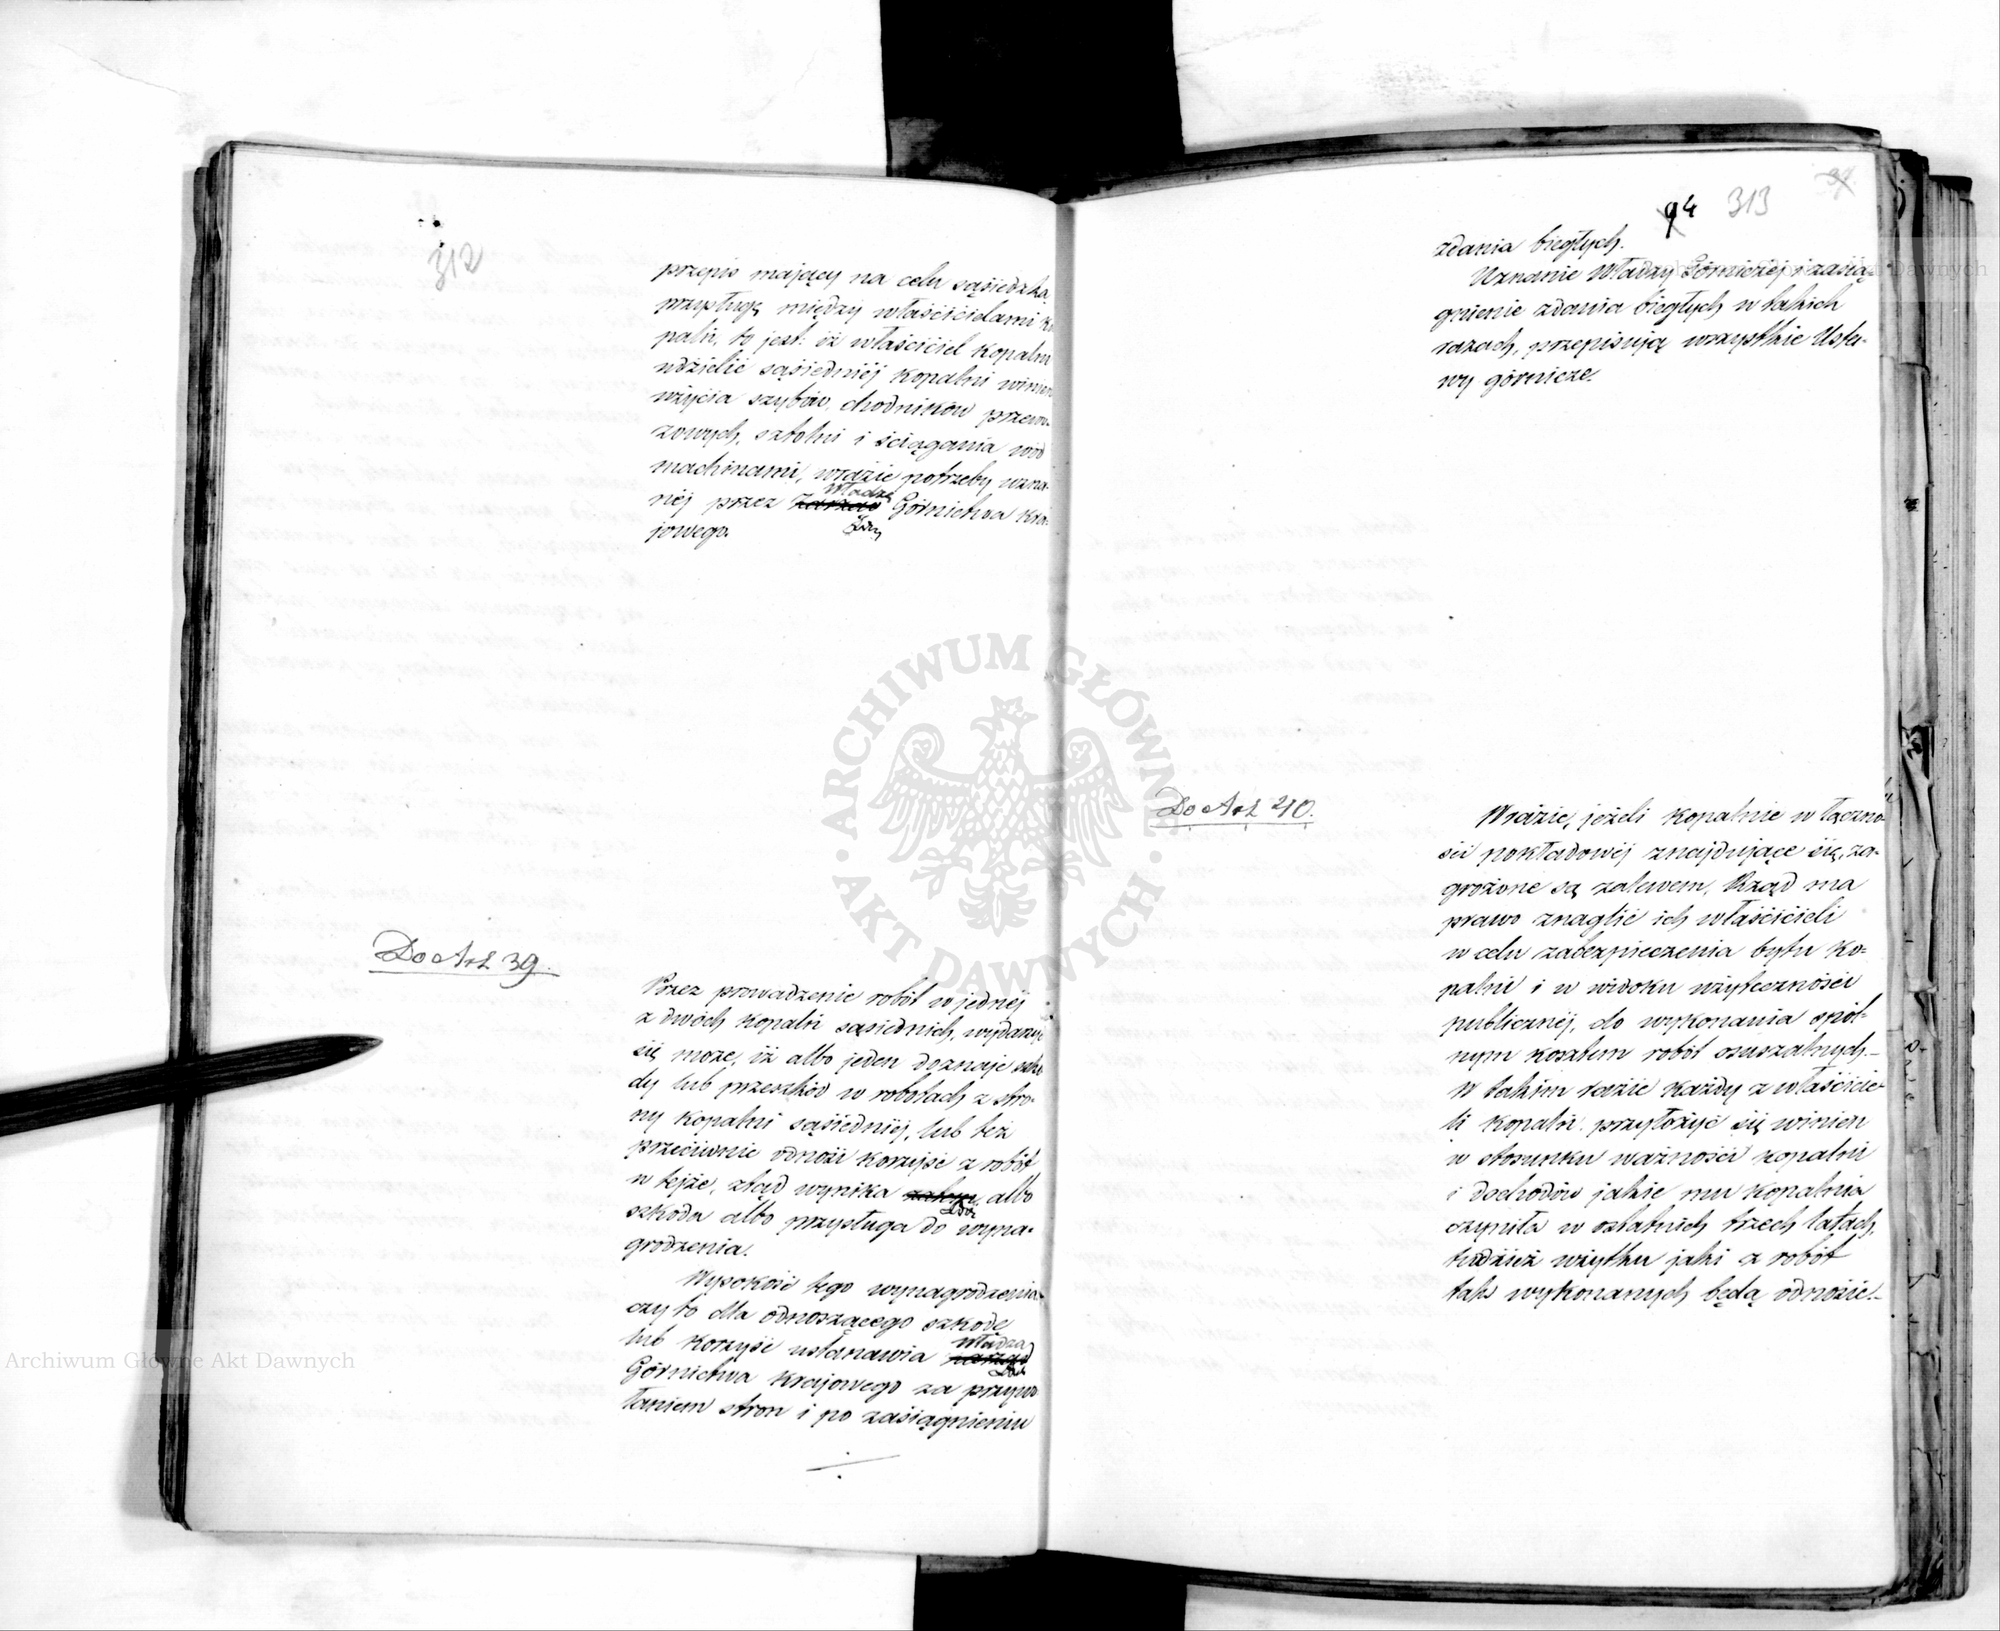 312
przepis mający na celu sąsiedzką
przysługę między właścicielami ko
palń, to jest: iż właściciel kopalni
udzielić sąsiedniej kopalni winien
użycia szybów, chodników przewo-
zowych, sztolni i ściągania wód
machinami, wrazie potrzeby uzna-
nej przez Władzę Górnictwa kra-
jowego.
Do Art 39.
Przez prowadzenie robót w jednej
z dwóch kopalń sąsiednich, wydarzyć
się może, iż albo jeden doznaje szko
dy lub przeszkód w robotach z stro-
ny kopalni sąsiedniej, lub też
przeciwnie odnosi korzyść z robót
w tejże, ztąd wynika albo
szkoda albo przysługa do wyna-
grodzenia.
Wysokość tego wynagrodzenia
czy to dla odnoszącego szkodę
lub korzyść ustanawia Władza
Górnictwa krajowego za przywo
łaniem stron i po zasiągnieniu
94 313 37
zdania biegłych.
Uznanie Władzy Górniczej i zasią-
gnienie zdania biegłych w takich
razach, przepisują wszystkie Usta-
wy górnicze.
Do Art 40.
Wrazie, jeżeli kopalnie w łączno-
ści pokładowej znajdujące się, za-
grożone są zalewem, Rząd ma
prawo znaglić ich właścicieli
w celu zabezpieczenia bytu ko-
palni i w widoku użyteczności
publicznej, do wykonania spól-
nym kosztem robót osuszalnych.-
w takim razie każdy z właścicie-
li kopalń przyłożyć się winien
w stosunku ważności kopalni
i dochodów jakie mu kopalnia
czyniła w ostatnich trzech latach,
tudzież użytku jaki z robót
tak wykonanych będą odnosić.-
ARCHIWUM GŁÓWNE · AKT DAWNYCH ·
Archiwum Główne Akt Dawnych